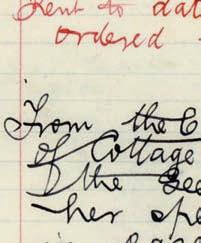 Rent to dat
ordered
From the C
of Cottage
the See
her spe